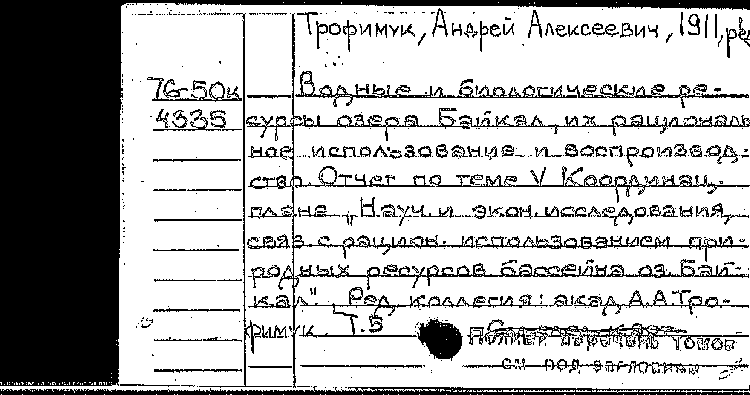 Трофимук, Андрей Алексеевич, 1911, ред
76-50к Водные и биологические ре-
4335 сурсы озера Байкал, их рациональ
ное использование и воспроизвод-
ство. Отчет по теме V Координац.
плана „Науч. и экон. исследования,
связ. с рацион. использованием при-
родных ресурсов бассейна оз. Бай-
кал". Ред. коллегия: акад. А.А. Тро-
фимук. Т.
полный перечень томов
см под заглавием